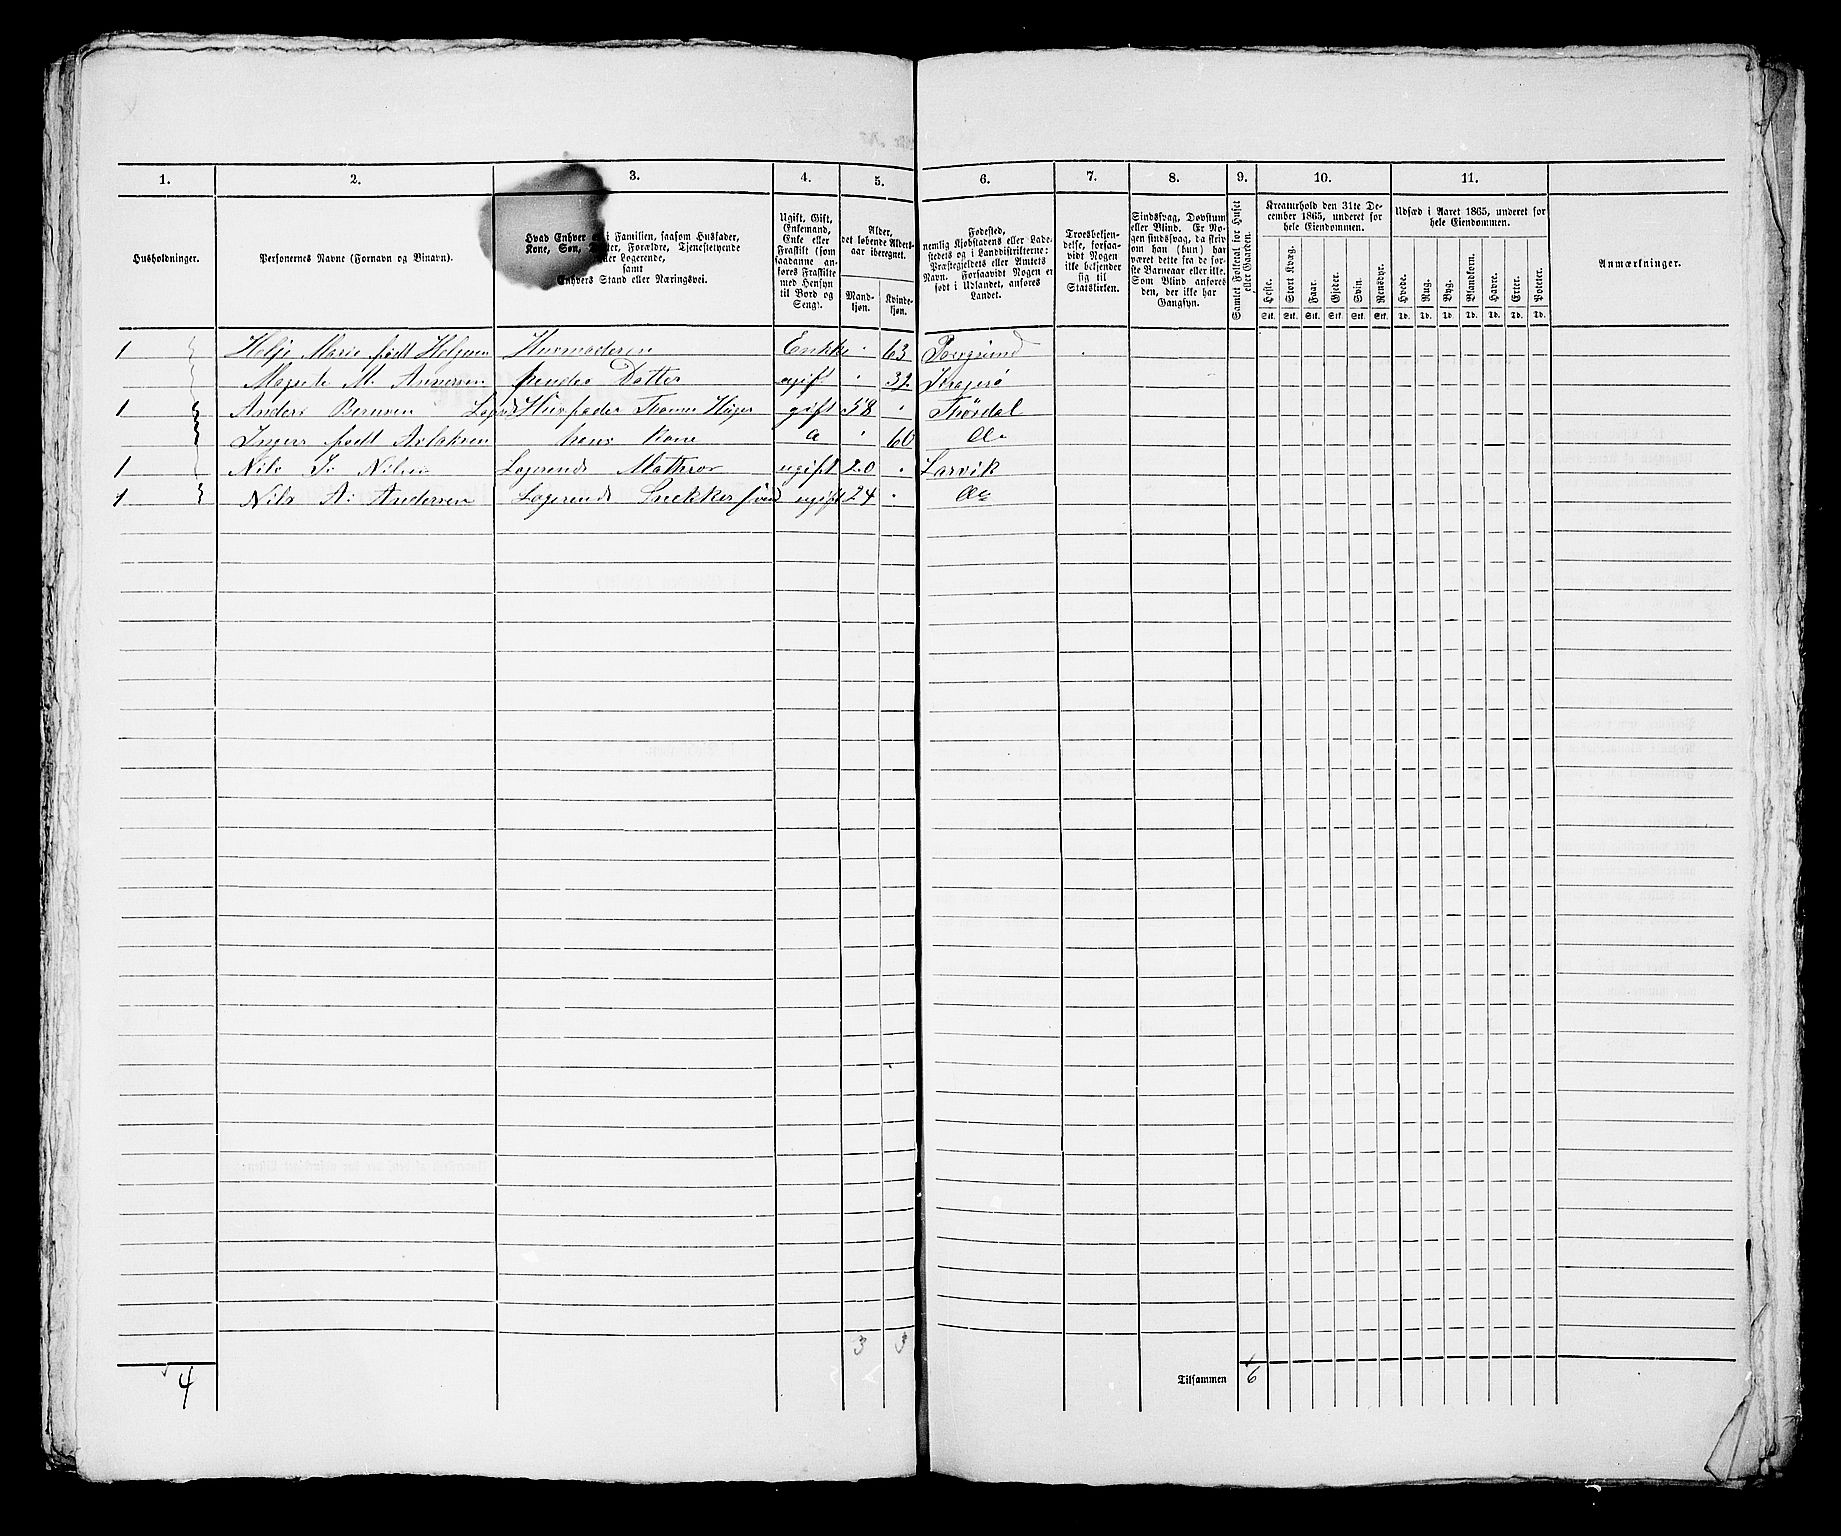 1. 2. 3. 4. 5. 6. 7. 8. 9. 10. 11.
Husholdninger.
Personernes Navne (Fornavn og Tilnavn).
Hvad Enhver er i Familien, saasom Husfader,
Kone, Søn, Datter, Forældre, Tjenestetyende
eller Logerende,
samt
Enhvers Stand eller Næringsvei.
Ugift, Gift,
Enkemand,
Enke eller
Fraskilt (som
saadanne an-
føres Fraskilte
med Hensyn
til Bord og
Seng).
Alder,
det løbende Alders-
aar iberegnet.
Mand-
kjøn.
Kvinde-
kjøn.
Fødested,
nemlig Kjøbstadens eller Lade-
stedets og i Landdistrikterne:
Præstegjeldets eller Amtets
Navn. Forsaavidt Nogen er
født i Udlandet, anføres
Landet.
Troesbekjen-
delse, forsaa-
vidt Nogen
ikke bekjender
sig til
Statskirken.
Sindssvag, Døvstum
eller Blind. Er No-
gen sindssvag, da skriv
om han (hun) har
været dette fra de før-
ste Barneaar eller ikke.
Som Blind anføres
den, der ikke har
Gangsyn.
Samlet Folketal for Huset
eller Gaarden.
Kreaturhold den 31te De-
cember 1865, underet for
hele Eiendommen.
Heste. Stort Kvæg. Faar. Gjeder. Svin. Rensdyr.
Stk. Stk. Stk. Stk. Stk. Stk.
Udsæd i Aaret 1865, underet for
hele Eiendommen.
Hvede. Rug. Byg. Blandkorn. Havre. Erter. Poteter.
Td. Td. Td. Td. Td. Td. Td.
Anmærkninger.
1 Helje Marie født Husmoderen Enkke 63 Porsgrund
M. Datter ugift 32 Kragerø
1 Anders Husfader gift 58 Thørdal
født hans Kone 60
1 Nils Logerende ugift 20 Larvik
1 Nils A: Andersen Logerende Snekker svend ugift 24
3 3
4
Tilsammen 6